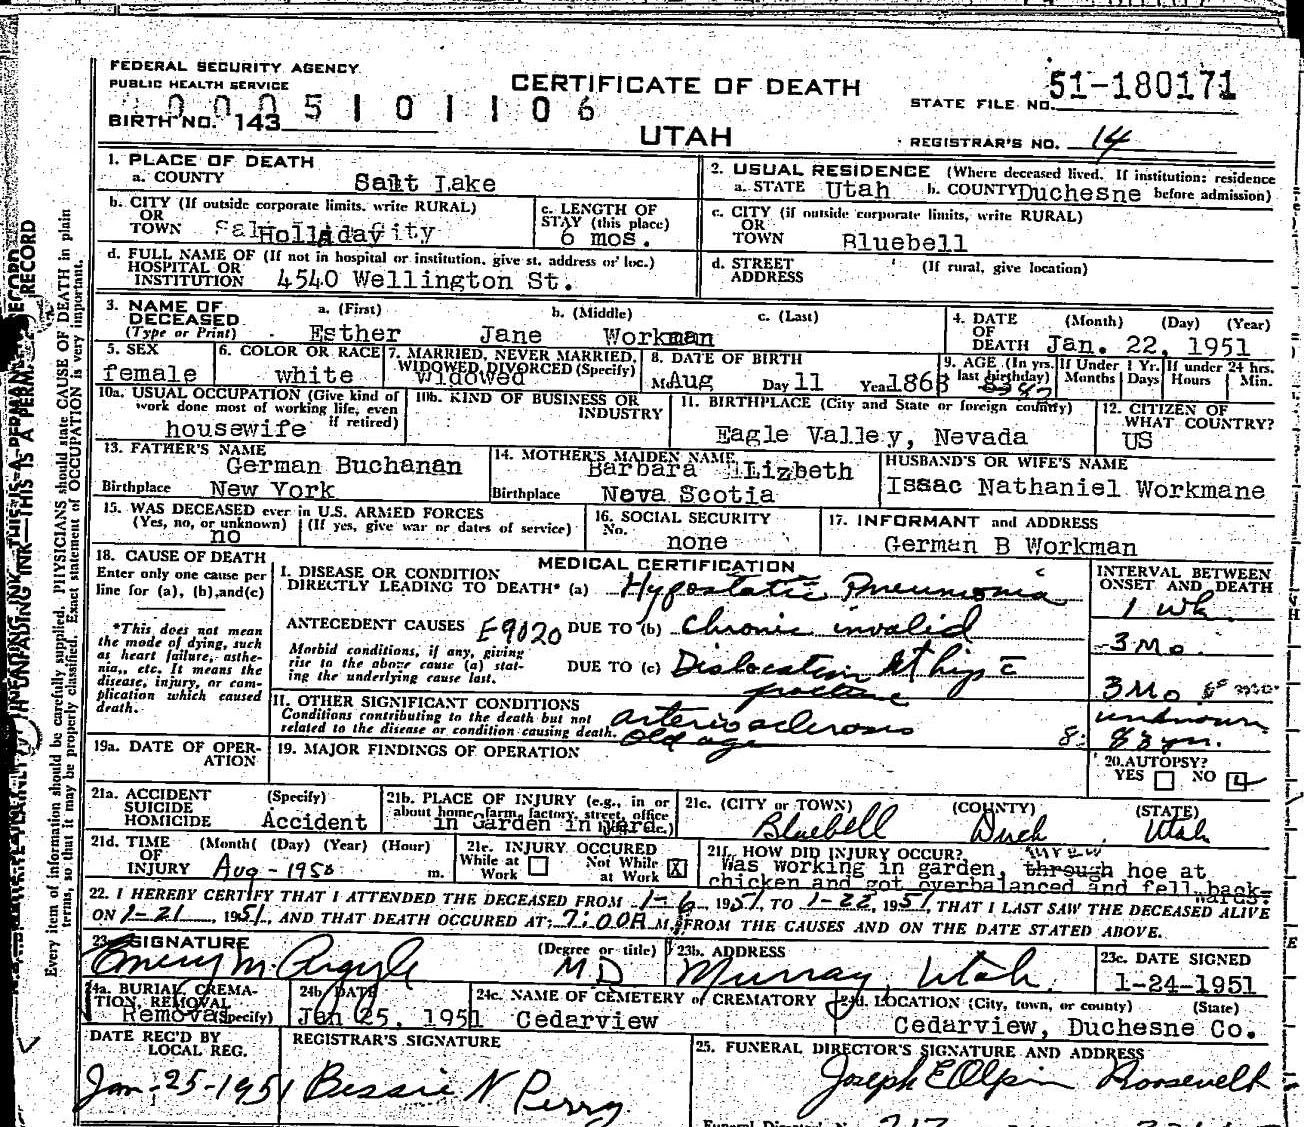 FEDERAL SECURITY AGENCY
PUBLIC HEALTH SERVICE
CERTIFICATE OF DEATH
STATE FILE NO. 51-180171
0005101106
BIRTH NO. 143
UTAH
REGISTRAR'S NO. 14
1. PLACE OF DEATH
a. COUNTY Salt Lake
2. USUAL RESIDENCE (Where deceased lived. If institution: residence before admission)
a. STATE Utah b. COUNTY Duchesne
b. CITY (If outside corporate limits, write RURAL)
OR
TOWN Holladay City
c. LENGTH OF
STAY (this place)
6 mos.
c. CITY (if outside corporate limits, write RURAL)
OR
TOWN Bluebell
d. FULL NAME OF (If not in hospital or institution, give st. address or loc.)
HOSPITAL OR
INSTITUTION 4540 Wellington St.
d. STREET (If rural, give location)
ADDRESS
3. NAME OF
DECEASED
(Type or Print)
a. (First) b. (Middle) c. (Last)
Esther Jane Workman
4. DATE (Month) (Day) (Year)
OF
DEATH Jan. 22, 1951
5. SEX
female
6. COLOR OR RACE
white
7. MARRIED, NEVER MARRIED,
WIDOWED, DIVORCED (Specify)
widowed
8. DATE OF BIRTH
Mo. Aug Day 11 Year 1868
9. AGE (In yrs. last birthday)
If Under 1 Yr.
Months Days
If under 24 hrs.
Hours Min.
10a. USUAL OCCUPATION (Give kind of
work done most of working life, even
if retired)
housewife
10b. KIND OF BUSINESS OR
INDUSTRY
11. BIRTHPLACE (City and State or foreign country)
Eagle Valley, Nevada
12. CITIZEN OF
WHAT COUNTRY?
US
13. FATHER'S NAME
German Buchanan
Birthplace New York
14. MOTHER'S MAIDEN NAME
Barbara Elizbeth
Birthplace Nova Scotia
HUSBAND'S OR WIFE'S NAME
Issac Nathaniel Workmane
15. WAS DECEASED ever in U.S. ARMED FORCES
(Yes, no, or unknown) (If yes, give war or dates of service)
no
16. SOCIAL SECURITY
No.
none
17. INFORMANT and ADDRESS
German B Workman
18. CAUSE OF DEATH
Enter only one cause per
line for (a), (b), and (c)
*This does not mean
the mode of dying, such
as heart failure, asthe-
nia, etc. It means the
disease, injury, or com-
plication which caused
death.
MEDICAL CERTIFICATION
INTERVAL BETWEEN
ONSET AND DEATH
I. DISEASE OR CONDITION
DIRECTLY LEADING TO DEATH* (a) Hypostatic Pneumonia 1 wk.
ANTECEDENT CAUSES E9020 DUE TO (b) Chronic invalid 3 Mo.
Morbid conditions, if any, giving
rise to the above cause (a) stat-
ing the underlying cause last.
DUE TO (c) Dislocation Lt hip c̄ fracture 3 Mo
II. OTHER SIGNIFICANT CONDITIONS
Conditions contributing to the death but not
related to the disease or condition causing death.
arteriosclerosis unknown
old age 83 yrs.
19a. DATE OF OPER-
ATION
19. MAJOR FINDINGS OF OPERATION
20. AUTOPSY?
YES NO
21a. ACCIDENT (Specify)
SUICIDE
HOMICIDE Accident
21b. PLACE OF INJURY (e.g., in or
about home, farm, factory, street, office
in Garden in yard
21c. (CITY or TOWN) (COUNTY) (STATE)
Bluebell Duch Utah
21d. TIME (Month) (Day) (Year) (Hour)
OF
INJURY Aug - 1950 m.
21e. INJURY OCCURED
While at Work Not While at Work X
21f. HOW DID INJURY OCCUR?
Was working in garden, through threw hoe at
chicken and got overbalanced and fell back-
wards.
22. I HEREBY CERTIFY THAT I ATTENDED THE DECEASED FROM 1-6, 1951, TO 1-22, 1951, THAT I LAST SAW THE DECEASED ALIVE
ON 1-21, 1951, AND THAT DEATH OCCURED AT 7:00 A M., FROM THE CAUSES AND ON THE DATE STATED ABOVE.
23a. SIGNATURE (Degree or title)
Emery M. Argyle MD
23b. ADDRESS
Murray, Utah.
23c. DATE SIGNED
1-24-1951
24a. BURIAL, CREMA-
TION, REMOVAL
(Specify)
Removal
24b. DATE
Jan 25, 1951
24c. NAME OF CEMETERY or CREMATORY
Cedarview
24d. LOCATION (City, town, or county) (State)
Cedarview, Duchesne Co.
DATE REC'D BY
LOCAL REG.
Jan-25-1951
REGISTRAR'S SIGNATURE
Bessie N Perry
25. FUNERAL DIRECTOR'S SIGNATURE AND ADDRESS
Joseph E Olpin Roosevelt
Every item of information should be carefully supplied. PHYSICIANS should state CAUSE OF DEATH in plain
terms, so that it may be properly classified. Exact statement of OCCUPATION is very important.